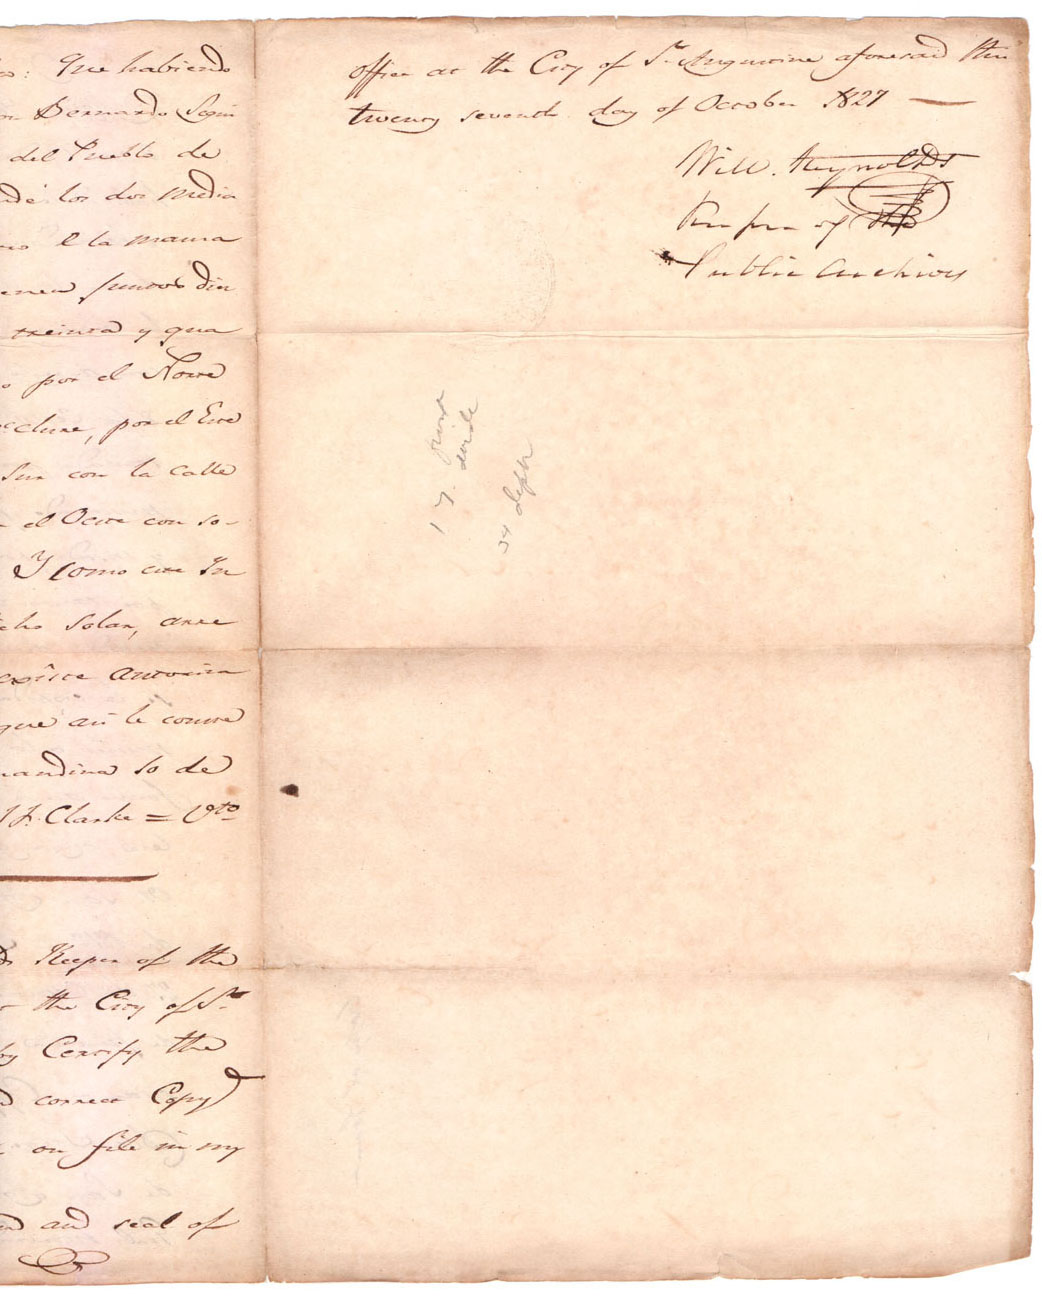 : Que habiendo
Bernardo Segui
del Pueblo de
los dos media
la mama
juntos dia
treinta y qua
por el Norte
clure, por el Este
Sur con la calle
el Oeste con so-
Y como este In
solar, ante
Antonia
que asi le consta
so de
Clarke = Vto
Keeper of the
the City of St.
Certify the
correct Copy
on file in my
and seal of
office at the City of St. Augustine aforesaid this
twenty seventh day of October 1827 —
Will. Reynolds
Keeper of the
Public Archives
17. front
wide
34 depth